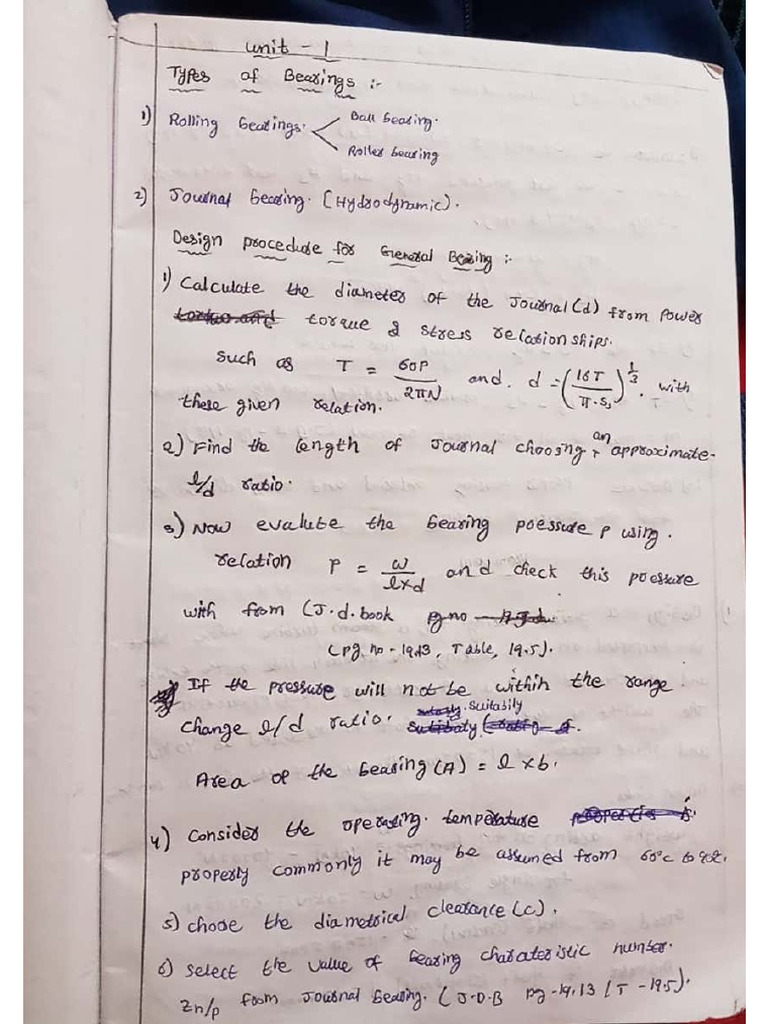 unit - 1
Types of Bearings :-
1) Rolling bearings. Ball bearing.
Roller bearing
2) Journal bearing. (Hydrodynamic).
Design procedure for General Bearing :-
1) Calculate the diameter of the Journal (d) from power
torque & stress relationships.
Such as T = 60P / 2πN and. d = (16T / π.Ss)^1/3. with
these given relation.
2) Find the length of Journal choosing an approximate-
l/d ratio.
3) Now evalute the bearing pressure P using.
relation P = w / l×d and check this pressure
with from (J.d.book pg no
(pg no - 19.13, Table, 19.5).
If the pressure will not be within the range.
Change l/d ratio. Suitabily
Area of the bearing (A) = l × b.
4) Consider the operating. temperature
properly commonly it may be assumed from 60°c to 90°c.
5) choose the diametrical clearance (c).
6) select the value of bearing charateristic number.
Zn/p from Journal bearing. (J.D.B pg - 19.13 (T - 19.5).